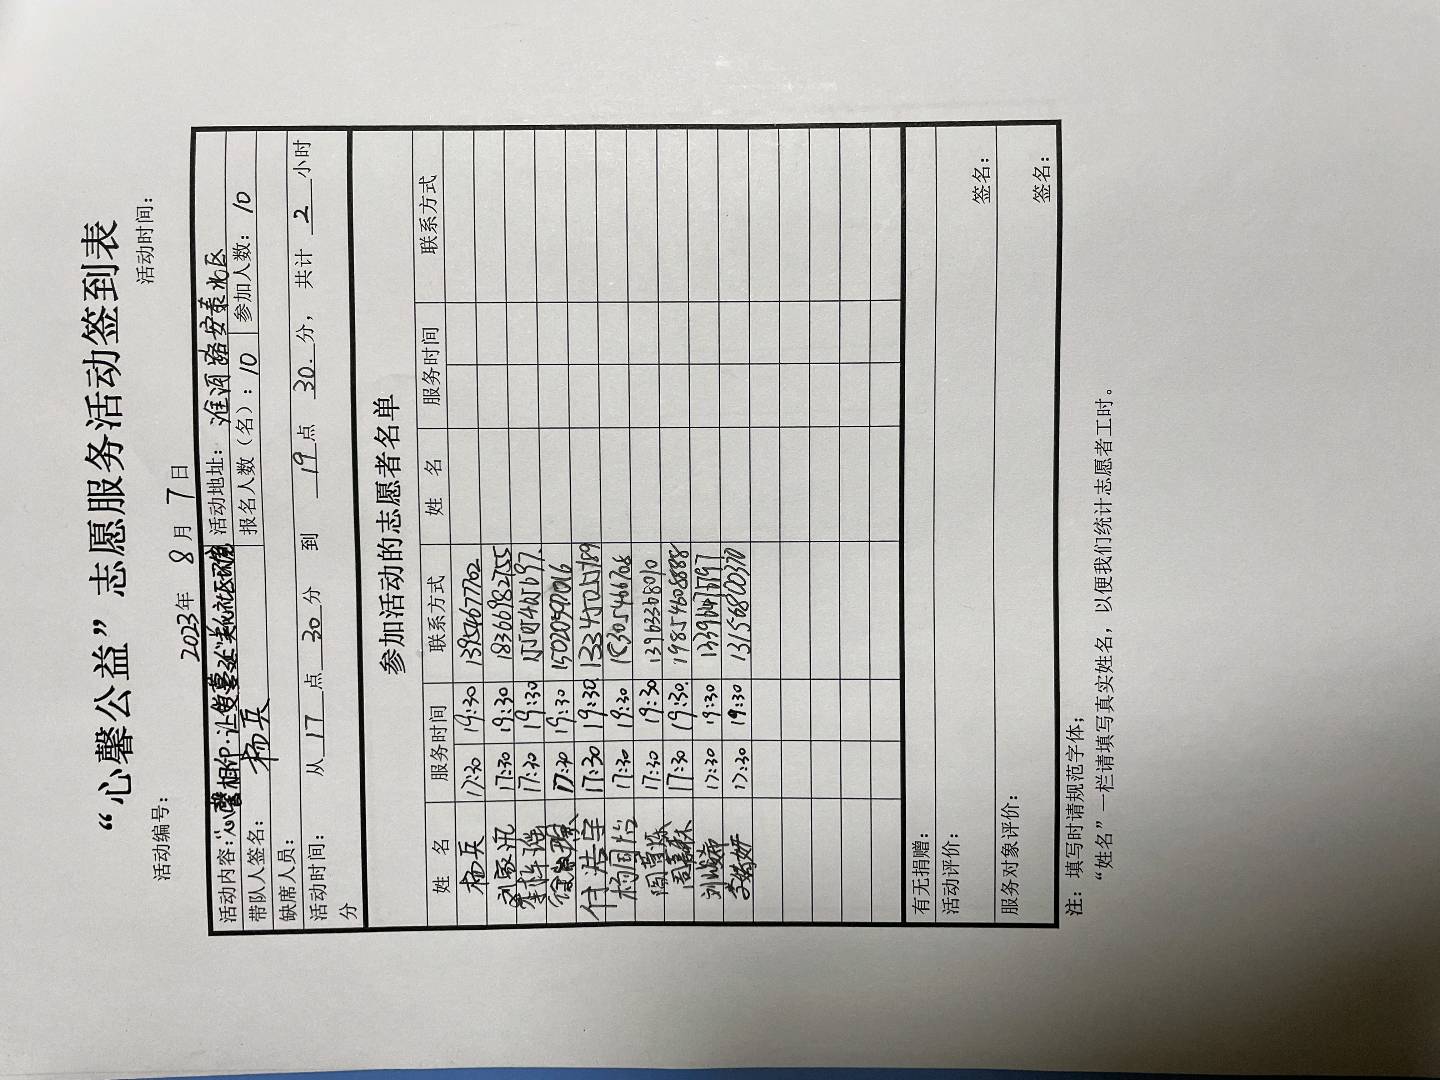 “心馨公益”志愿服务活动签到表
活动编号： 2023年 8 月 7 日 活动时间：
活动内容：“心馨相印·让爱蔓延” 活动地址： 淮河路安泰地区
带队人签名： 杨兵 报名人数（名）：10 参加人数：10
缺席人员：
活动时间： 从 17 点 30 分 到 19 点 30 分， 共计 2 小时
分
参加活动的志愿者名单
姓 名 服务时间 联系方式 姓 名 服务时间 联系方式
杨兵 17:30 19:30 13954677702
刘家汛 17:30 19:30 18366982755
17:30 19:30
17:30 19:30 15020597016
付浩宇 17:30 19:30 13345055789
杨周怡 17:30 19:30 18305466708
17:30 19:30 13963368010
周嘉霖 17:30 19:30 19854608888
17:30 19:30 13396475797
李婧妍 17:30 19:30 13156800370
有无捐赠：
活动评价：
签名：
服务对象评价：
签名：
注：填写时请规范字体；
“姓名”一栏请填写真实姓名，以便我们统计志愿者工时。